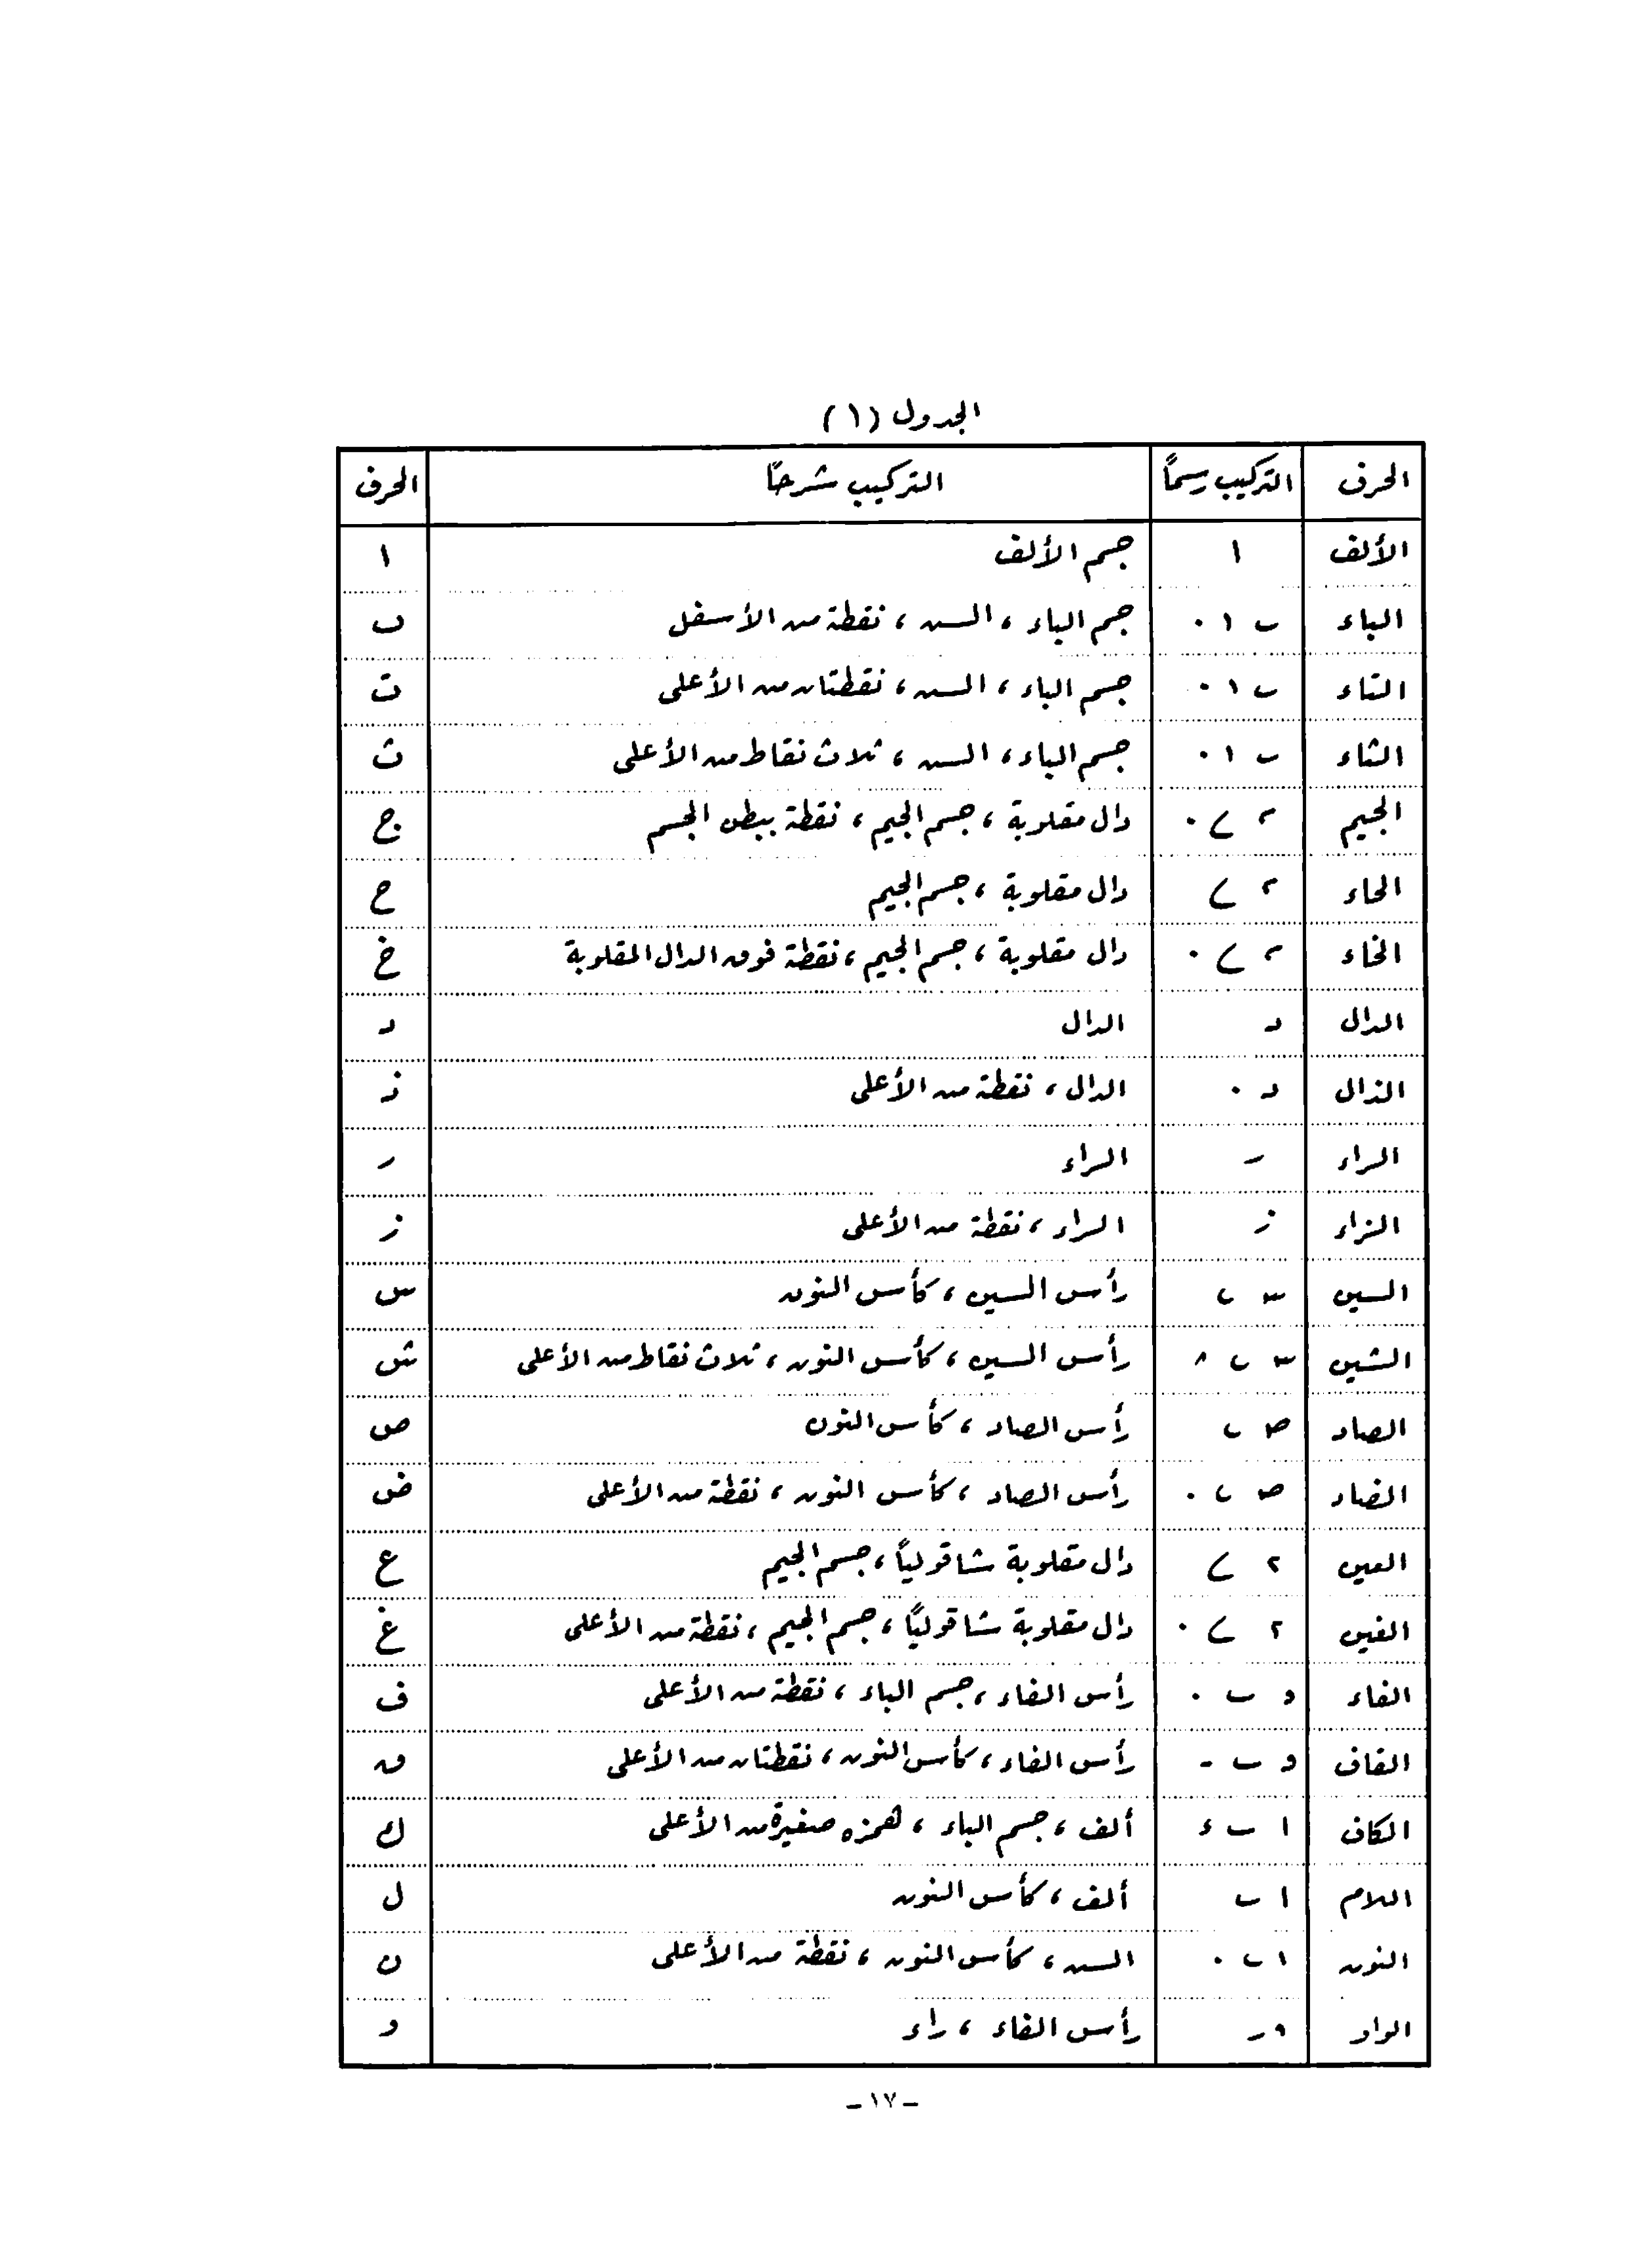 الجدول (١)
الحرف التركيب رسماً التركيب شرحاً الحرف
الألف ا جسم الألف ا
الباء ٮ ١ ٠ جسم الباء ، السن ، نقطة من الأسفل ب
التاء ٮ ١ ٠ جسم الباء ، السن ، نقطتان من الأعلى ت
الثاء ٮ ١ ٠ جسم الباء ، السن ، ثلاث نقاط من الأعلى ث
الجيم دال مقلوبة ، جسم الجيم ، نقطة ببطن الجسم ج
الحاء دال مقلوبة ، جسم الجيم ح
الخاء دال مقلوبة ، جسم الجيم ، نقطة فوق الدال المقلوبة خ
الدال د الدال د
الذال د ٠ الدال ، نقطة من الأعلى ذ
الراء ر الراء ر
الزاء ز الراء ، نقطة من الأعلى ز
السين رأس السين ، كأس النون س
الشين رأس السين ، كأس النون ، ثلاث نقاط من الأعلى ش
الصاد رأس الصاد ، كأس النون ص
الضاد رأس الصاد ، كأس النون ، نقطة من الأعلى ض
العين دال مقلوبة شاقولياً ، جسم الجيم ع
الغين دال مقلوبة شاقولياً ، جسم الجيم ، نقطة من الأعلى غ
الفاء رأس الفاء ، جسم الباء ، نقطة من الأعلى ف
القاف رأس الفاء ، كأس النون ، نقطتان من الأعلى ق
الكاف ا ٮ ء ألف ، جسم الباء ، همزه صغيرة من الأعلى ك
اللام ا ٮ ألف ، كأس النون ل
النون ١ ٮ ٠ السن ، كأس النون ، نقطة من الأعلى ن
الواو و ر رأس الفاء ، راء و
- ١٧ -